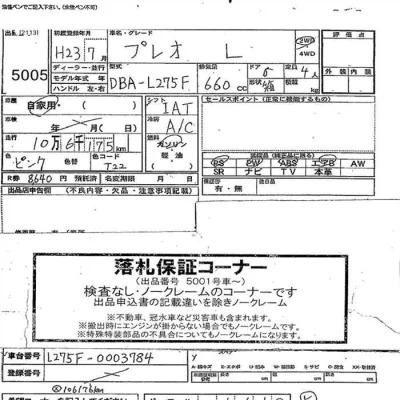 消鉛ペンでご記入下さい。(水性ペン不可)
出品 (2) 131
初度登録年月 車名・グレード
H23 7月 プレオ L 2WD 4WD
評価点
5005
ディーラー・並行
モデル年式 年
ハンドル 左・右
型式 DBA-L275F
排気量 660 cc
ドア 形状 5
定員 4人
外装 内装
車歴 自家用・( )
シフト IAT
セールスポイント(正常に機能するもの)
車検 年 月( )
冷房 A/C
走行 10万6千175km
燃料 ガソリン 軽油 ( )
色 ピンク 色替 カラーコード T22
純正品(純正品に限る)
PS PW ABS エアB AW
SR ナビ TV 本革
R券 8640円 預託済 名変期限 月 日
取説・保証書 有・無
出品店申告欄 (不良内容・欠品・注意事項記載)
落札保証コーナー
(出品番号 5001号車~)
検査なし・ノークレームのコーナーです
出品申込書の記載違いを除きノークレーム
※不動車、冠水車など災害車も含まれます。
※搬出時にエンジンが掛からない場合でもノークレームです。
※特殊特装部品の不具合についてもノークレームになります。
車台番号 L275F-0003784
登録番号
cm cm cm
106176km